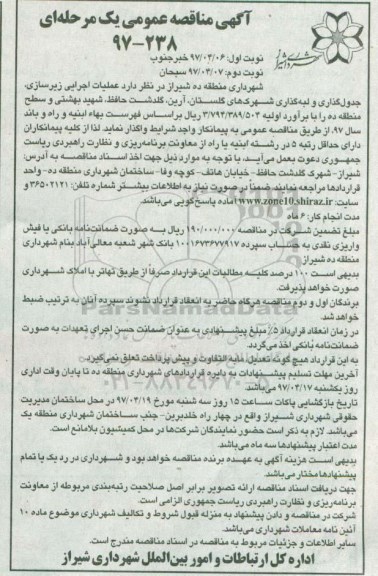 آگهی مناقصه عمومی یک مرحله‌ای
۹۷-۲۳۸
نوبت اول: ۹۷/۰۳/۰۶ خبرجنوب
نوبت دوم: ۹۷/۰۳/۰۷ سبحان
شهرداری منطقه ده شیراز در نظر دارد عملیات اجرایی زیرسازی،
جدول‌گذاری و لبه‌گذاری شهرک‌های گلستان، آرین، گلدشت حافظ، شهید بهشتی و سطح
منطقه ده را با برآورد اولیه ۳/۷۹۳/۳۸۹/۵۰۳ ریال براساس فهرست بهاء ابنیه و راه و باند
سال ۹۷، از طریق مناقصه عمومی به پیمانکار واجد شرایط واگذار نماید. لذا از کلیه پیمانکاران
دارای حداقل رتبه ۵ در رشته ابنیه یا راه از معاونت برنامه‌ریزی و نظارت راهبردی ریاست
جمهوری دعوت بعمل می‌آید، با توجه به موارد ذیل جهت اخذ اسناد مناقصه به آدرس:
شیراز- شهرک گلدشت حافظ- خیابان هاتف- کوچه وفا- ساختمان شهرداری منطقه ده- واحد
قراردادها مراجعه نمایند. ضمنا در صورت نیاز به اطلاعات بیشتر شماره تلفن: ۳۶۵۰۲۱۲۱ و
سایت: www.zone10.shiraz.ir آماده پاسخ‌گویی می‌باشد.
مدت انجام کار: ۶ ماه
مبلغ تضمین شرکت در مناقصه ۱۹۰/۰۰۰/۰۰۰ ریال به صورت ضمانت‌نامه بانکی یا فیش
واریزی نقدی به حساب سپرده ۱۰۰۱۶۷۳۶۷۷۹۱۷ بانک شهر شعبه معالی‌آباد بنام شهرداری
منطقه ده شیراز
بدیهی است ۱۰۰ درصد کلیه مطالبات این قرارداد صرفاً از طریق تهاتر با املاک شهرداری
صورت خواهد پذیرفت.
برندگان اول و دوم مناقصه هرگاه حاضر به انعقاد قرارداد نشوند سپرده آنان به ترتیب ضبط
خواهد شد.
در زمان انعقاد قرارداد ۵٪ مبلغ پیشنهادی به عنوان ضمانت حسن اجرای تعهدات به صورت
ضمانت‌نامه بانکی اخذ می‌گردد.
به این قرارداد هیچ گونه تعدیل، مابه التفاوت و پیش پرداخت تعلق نمی‌گیرد.
آخرین مهلت تسلیم پیشنهادات به دایره قراردادهای شهرداری منطقه ده تا پایان وقت اداری
روز یکشنبه ۹۷/۰۳/۱۷ می‌باشد.
تاریخ بازگشایی پاکات ساعت ۱۵ روز سه شنبه مورخ ۹۷/۰۳/۱۹ در محل ساختمان مدیریت
حقوقی شهرداری شیراز واقع در چهار راه خلدبرین- جنب ساختمان شهرداری منطقه یک
می‌باشد. لازم به ذکر است حضور نمایندگان شرکت‌ها در محل کمیسیون بلامانع است.
مدت اعتبار پیشنهادها سه ماه می‌باشد.
بدیهی است هزینه آگهی به عهده برنده مناقصه خواهد بود و شهرداری در رد یک یا تمام
پیشنهادها مختار می‌باشد.
جهت دریافت اسناد مناقصه ارائه تصویر برابر اصل صلاحیت رتبه‌بندی مربوطه از معاونت
برنامه‌ریزی و نظارت راهبردی ریاست جمهوری الزامی است.
شرکت در مناقصه و دادن پیشنهاد به منزله قبول شروط و تکالیف شهرداری موضوع ماده ۱۰
آئین نامه معاملات شهرداری می‌باشد.
سایر اطلاعات و جزئیات مربوط به مناقصه در اسناد مناقصه مندرج است.
اداره کل ارتباطات و امور بین‌الملل شهرداری شیراز